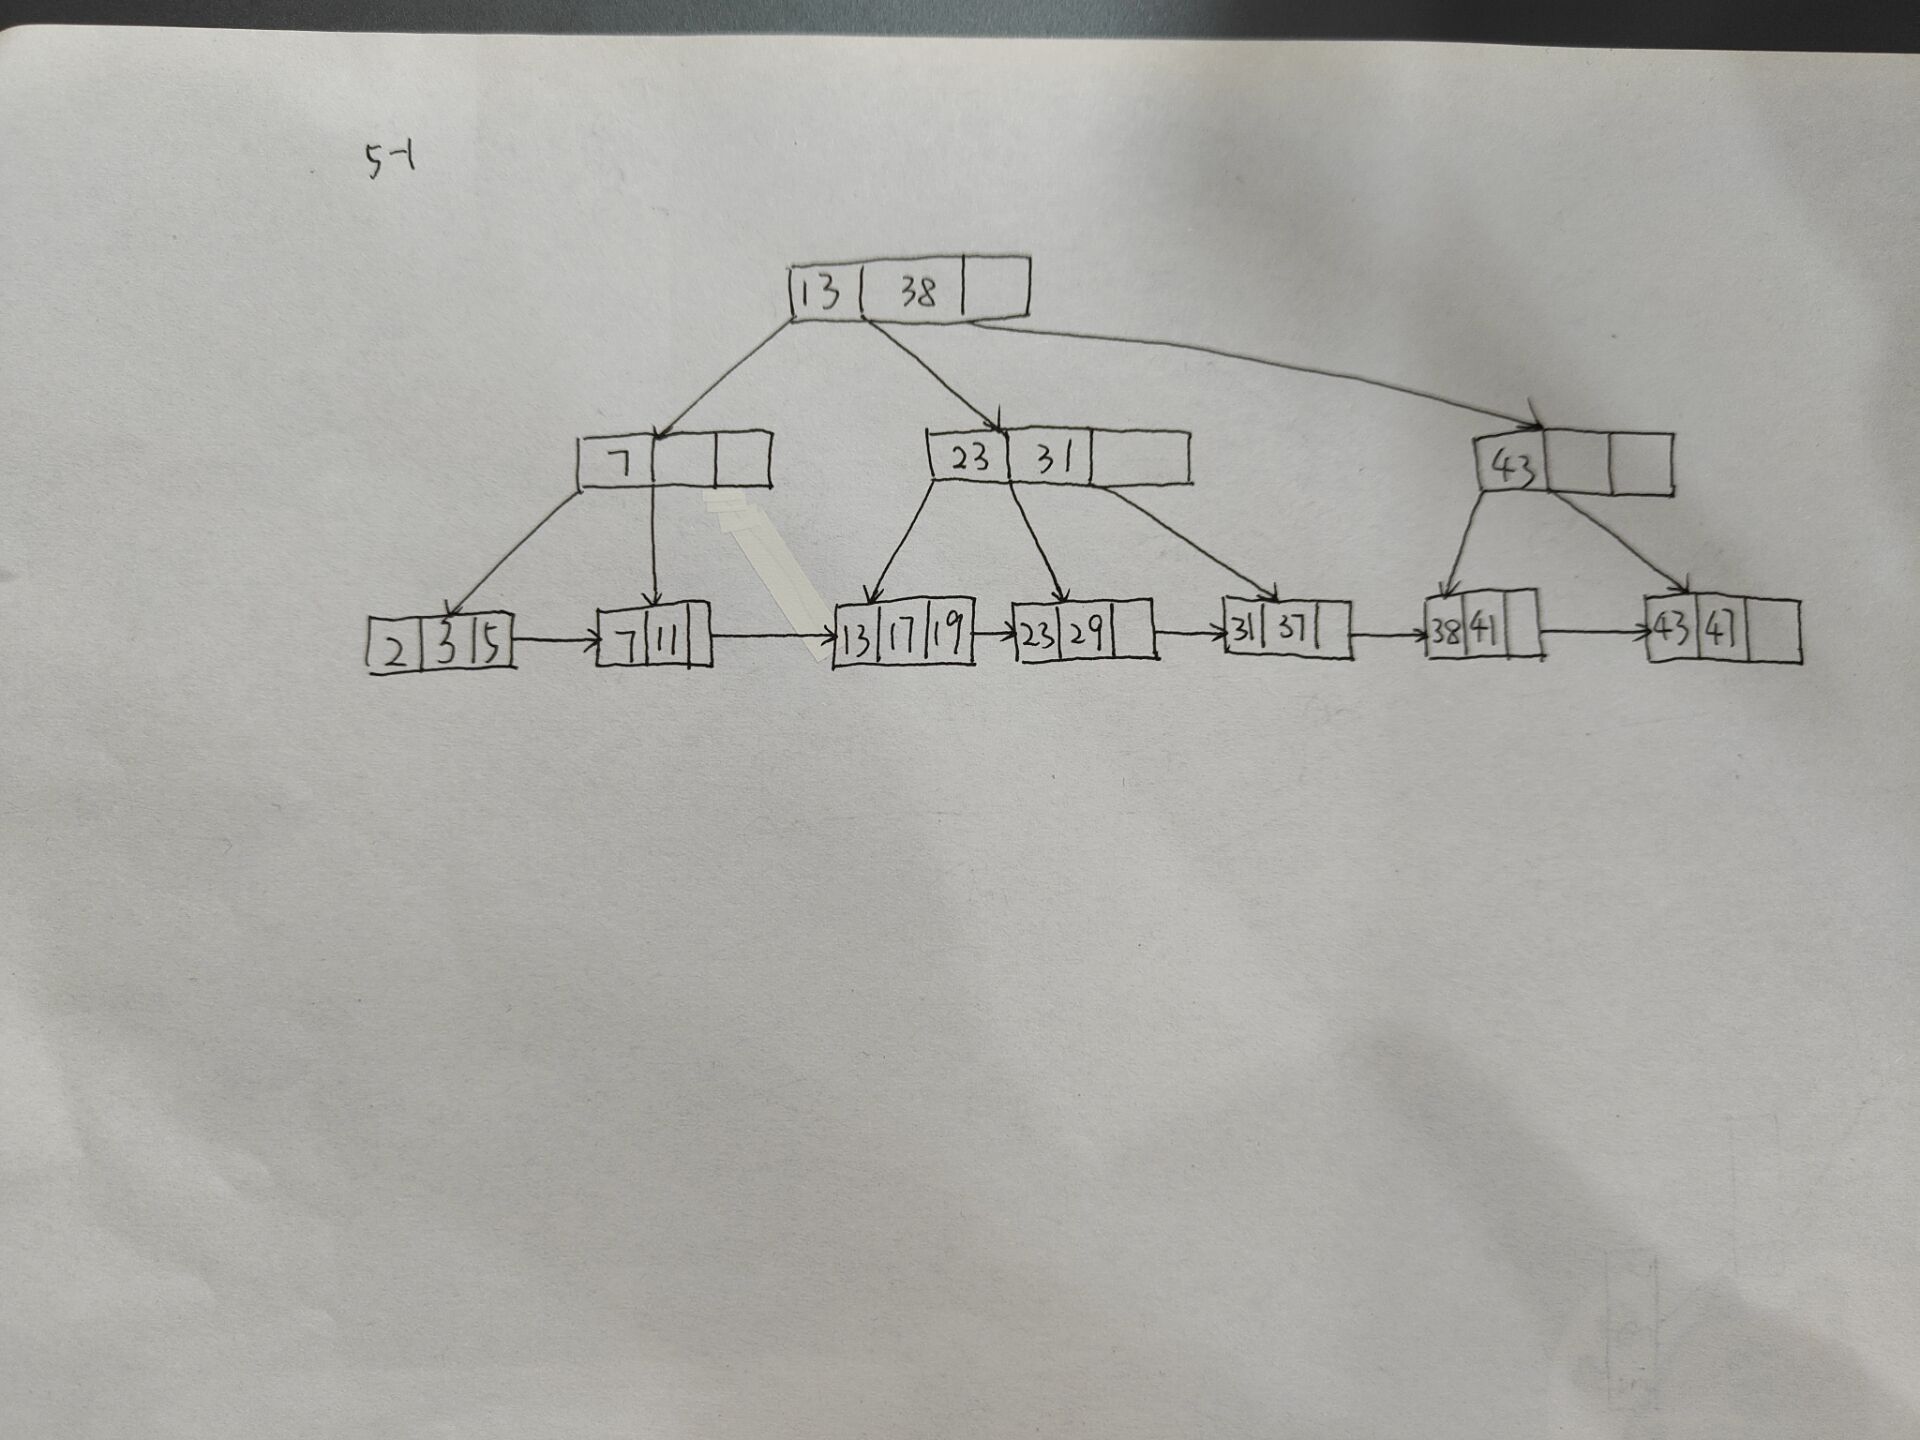 5-1
13 38
7 23 31 43
2 3 5 7 11 13 17 19 23 29 31 37 38 41 43 47